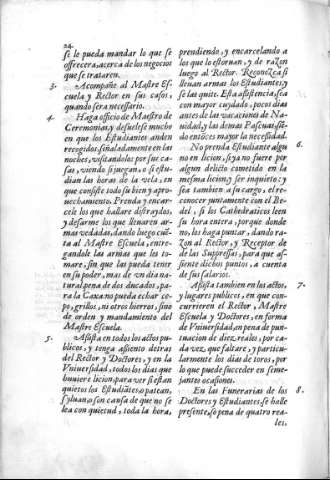 24.
se le pueda mandar lo que se
offrecera, acerca de los negocios
que se trataren.
3. Acompañe al Mastre Es
cuela y Rector en sus casos,
quando sera necessario.
4. Haga officio de Maestro de
Ceremonias, y desuelese mucho
en que los Estudiantes anden
recogidos, señaladamente en las
noches, visitandolos por sus ca-
sas, viendo si juegan, o si estu-
dian las horas de la vela, en
que consiste todo su bien y apro-
uechamiento. Prenda y encar-
cele los que hallare distraydos,
y desarme los que lleuaren ar-
mas vedadas, dando luego cuē-
ta al Mastre Escuela, entre-
gandole las armas que les to-
mare, sin que las pueda tener
en su poder, mas de vn dia na-
tural, pena de dos ducados, pa-
ra la Caxa: no pueda echar ce-
po, grillos, ni otros hierros, sino
de orden y mandamiento del
Mastre Escuela.
5. Assista en todos los actos pu-
blicos, y tenga assiento detras
del Rector y Doctores, y en la
Vniuersidad, todos los dias que
huuiere licion, para ver si estan
quietos los Estudiātes, o patean,
syluan, o son causa de que no se
lea con quietud, toda la hora,
prendiendo, y encarcelando a
los que lo estoruan, y de razon
luego al Rector. Reconozca si
lleuan armas los Estudiantes, y
se las quite. Esta assistencia, sea
con mayor cuydado, pocos dias
antes de las vacaciones de Na-
uidad, y las demas Pascuas, siē-
do entōces mayor la necessidad.
6. No prenda Estudiante algu
no en licion, si ya no fuere por
algun delicto cometido en la
mesma licion, y ser inquieto: y
sea tambien a su cargo, el re-
conocer puntamente con el Be-
del, si los Cathedraticos leen
su hora entera, porque donde
no, les haga puntar, dando ra-
zon al Rector, y Receptor de
las Supressas, para que as-
siente dichos puntos, a cuenta
de sus salarios.
7. Assista tambien en los actos,
y lugares publicos, en que con-
currieren el Rector, Mastre
Escuela y Doctores, en forma
de Vniuersidad, en pena de pun-
tuacion de diez reales, por ca-
da vez, que faltare, y particu-
larmente los dias de toros, por
lo que puede succeder en seme-
jantes ocasiones.
8. En las Funerarias de los
Doctores y Estudiantes se halle
presente, so pena de quatro rea-
les.